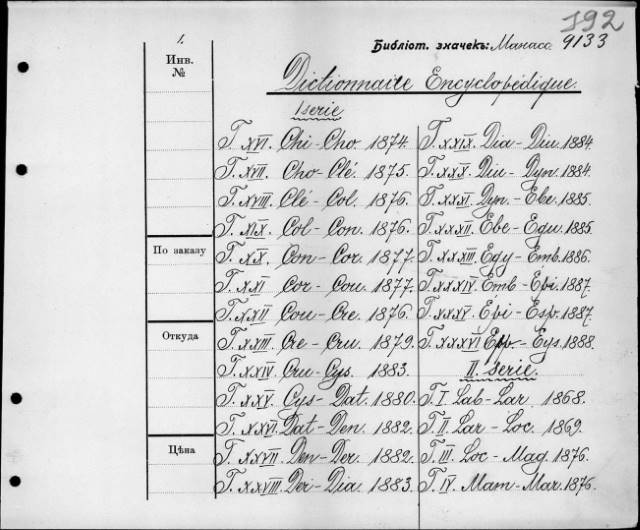 192
1.
Библіот. значекъ: Манасс. 9133
Инв.
№
Dictionnaire Encyclopédique.
I serie
T. XVI. Chi-Cho. 1874.
T. XVII. Cho-Clé. 1875.
T. XVIII. Clé-Col. 1876.
T. XIX. Col-Con. 1876.
T. XX. Con-Cor. 1877.
T. XXI. Cor-Cou. 1877.
T. XXII. Cou-Cre. 1876.
T. XXIII. Cre-Cru. 1879.
T. XXIV. Cru-Cys. 1883.
T. XXV. Cys-Dat. 1880.
T. XXVI. Dat-Den. 1882.
T. XXVII. Den-Der. 1882.
T. XXVIII. Der-Dia. 1883.
T. XXIX. Dia-Diu. 1884.
T. XXX. Diu-Dyn. 1884.
T. XXXI. Dyn-Ebe. 1885.
T. XXXII. Ebe-Egu. 1885.
T. XXXIII. Egy-Emb. 1886.
T. XXXIV. Emb-Epi. 1887.
T. XXXV. Epi-Esp. 1887.
T. XXXVI. Eys. 1888.
II. serie.
T. I. Lab-Lar. 1868.
T. II. Lar-Loc. 1869.
T. III. Loc-Mag. 1876.
T. IV. Mam-Mar. 1876.
По заказу
Откуда
Цѣна